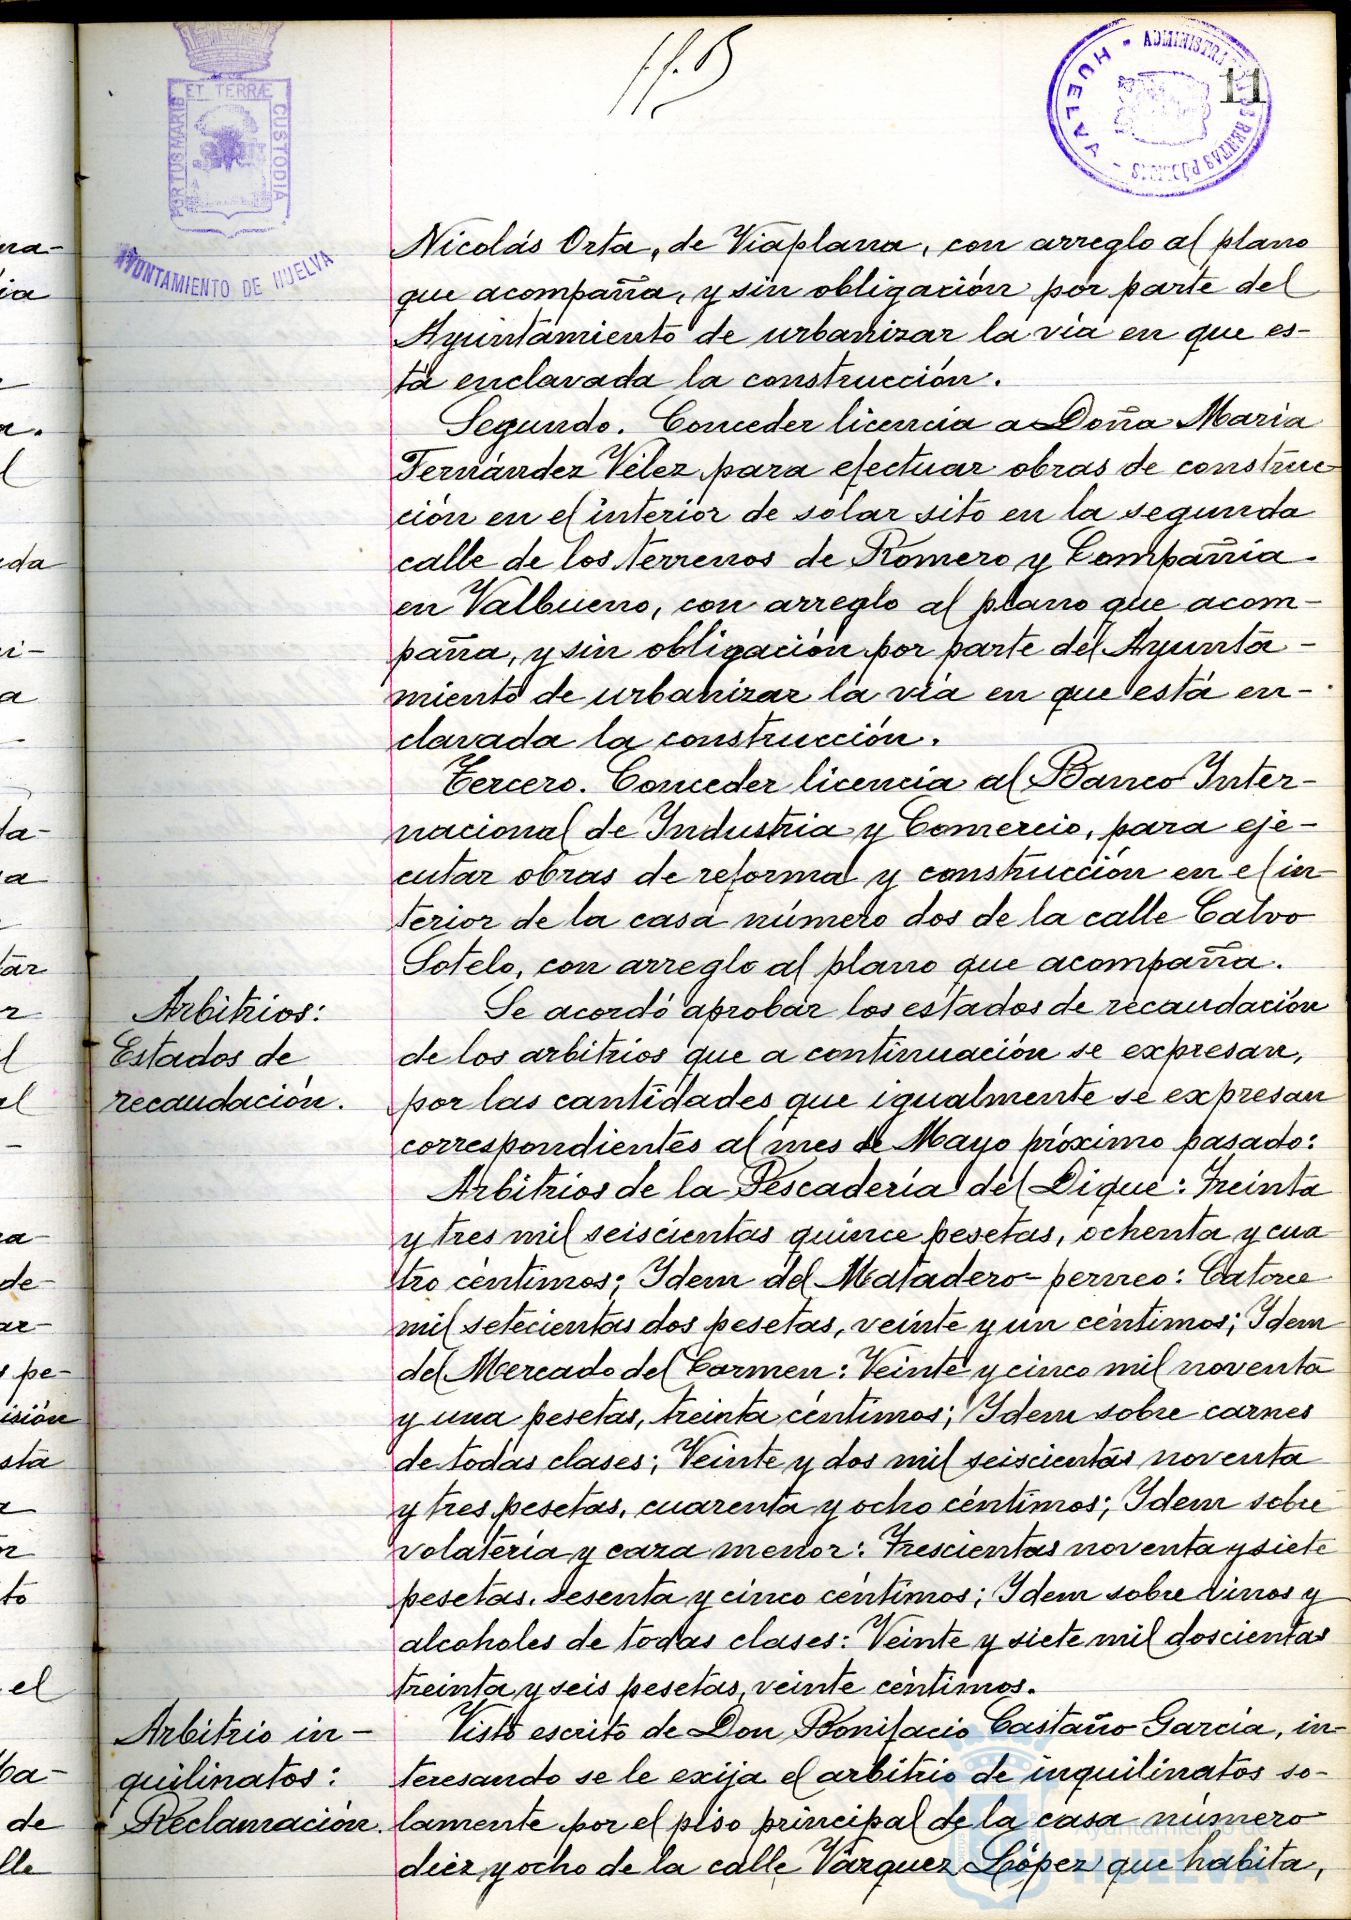 ET TERRÆ
PORTUS MARIS
CUSTODIA
AYUNTAMIENTO DE HUELVA
HUELVA
11
Nicolás Orta, de Viaplana, con arreglo al plano
que acompaña, y sin obligación por parte del
Ayuntamiento de urbanizar la vía en que es-
tá enclavada la construcción.
Segundo. Conceder licencia a Doña María
Fernández Vélez para efectuar obras de construc-
ción en el interior de solar sito en la segunda
calle de los terrenos de Romero y Compañía
en Valbueno, con arreglo al plano que acom-
paña, y sin obligación por parte del Ayunta-
miento de urbanizar la vía en que está en-
clavada la construcción.
Tercero. Conceder licencia al Banco Inter-
nacional de Industria y Comercio, para eje-
cutar obras de reforma y construcción en el in-
terior de la casa número dos de la calle Calvo
Sotelo, con arreglo al plano que acompaña.
Arbitrios:
Estados de
recaudación.
Se acordó aprobar los estados de recaudación
de los arbitrios que a continuación se expresan,
por las cantidades que igualmente se expresan
correspondientes al mes de Mayo próximo pasado:
Arbitrios de la Pescadería del Dique: Treinta
y tres mil seiscientas quince pesetas, ochenta y cua
tro céntimos; Idem del Matadero-perneo: Catorce
mil setecientas dos pesetas, veinte y un céntimos; Idem
del Mercado del Carmen: Veinte y cinco mil noventa
y una pesetas, treinta céntimos; Idem sobre carnes
de todas clases; Veinte y dos mil seiscientas noventa
y tres pesetas, cuarenta y ocho céntimos; Idem sobre
volatería y caza menor: Trescientas noventa y siete
pesetas, sesenta y cinco céntimos; Idem sobre vinos y
alcoholes de todas clases: Veinte y siete mil doscientas
treinta y seis pesetas, veinte céntimos.
Arbitrio in-
quilinatos:
Reclamación.
Visto escrito de Don Bonifacio Castaño García, in-
teresando se le exija el arbitrio de inquilinatos so-
lamente por el piso principal de la casa número
diez y ocho de la calle Vázquez López que habita,
Ayuntamiento de
HUELVA